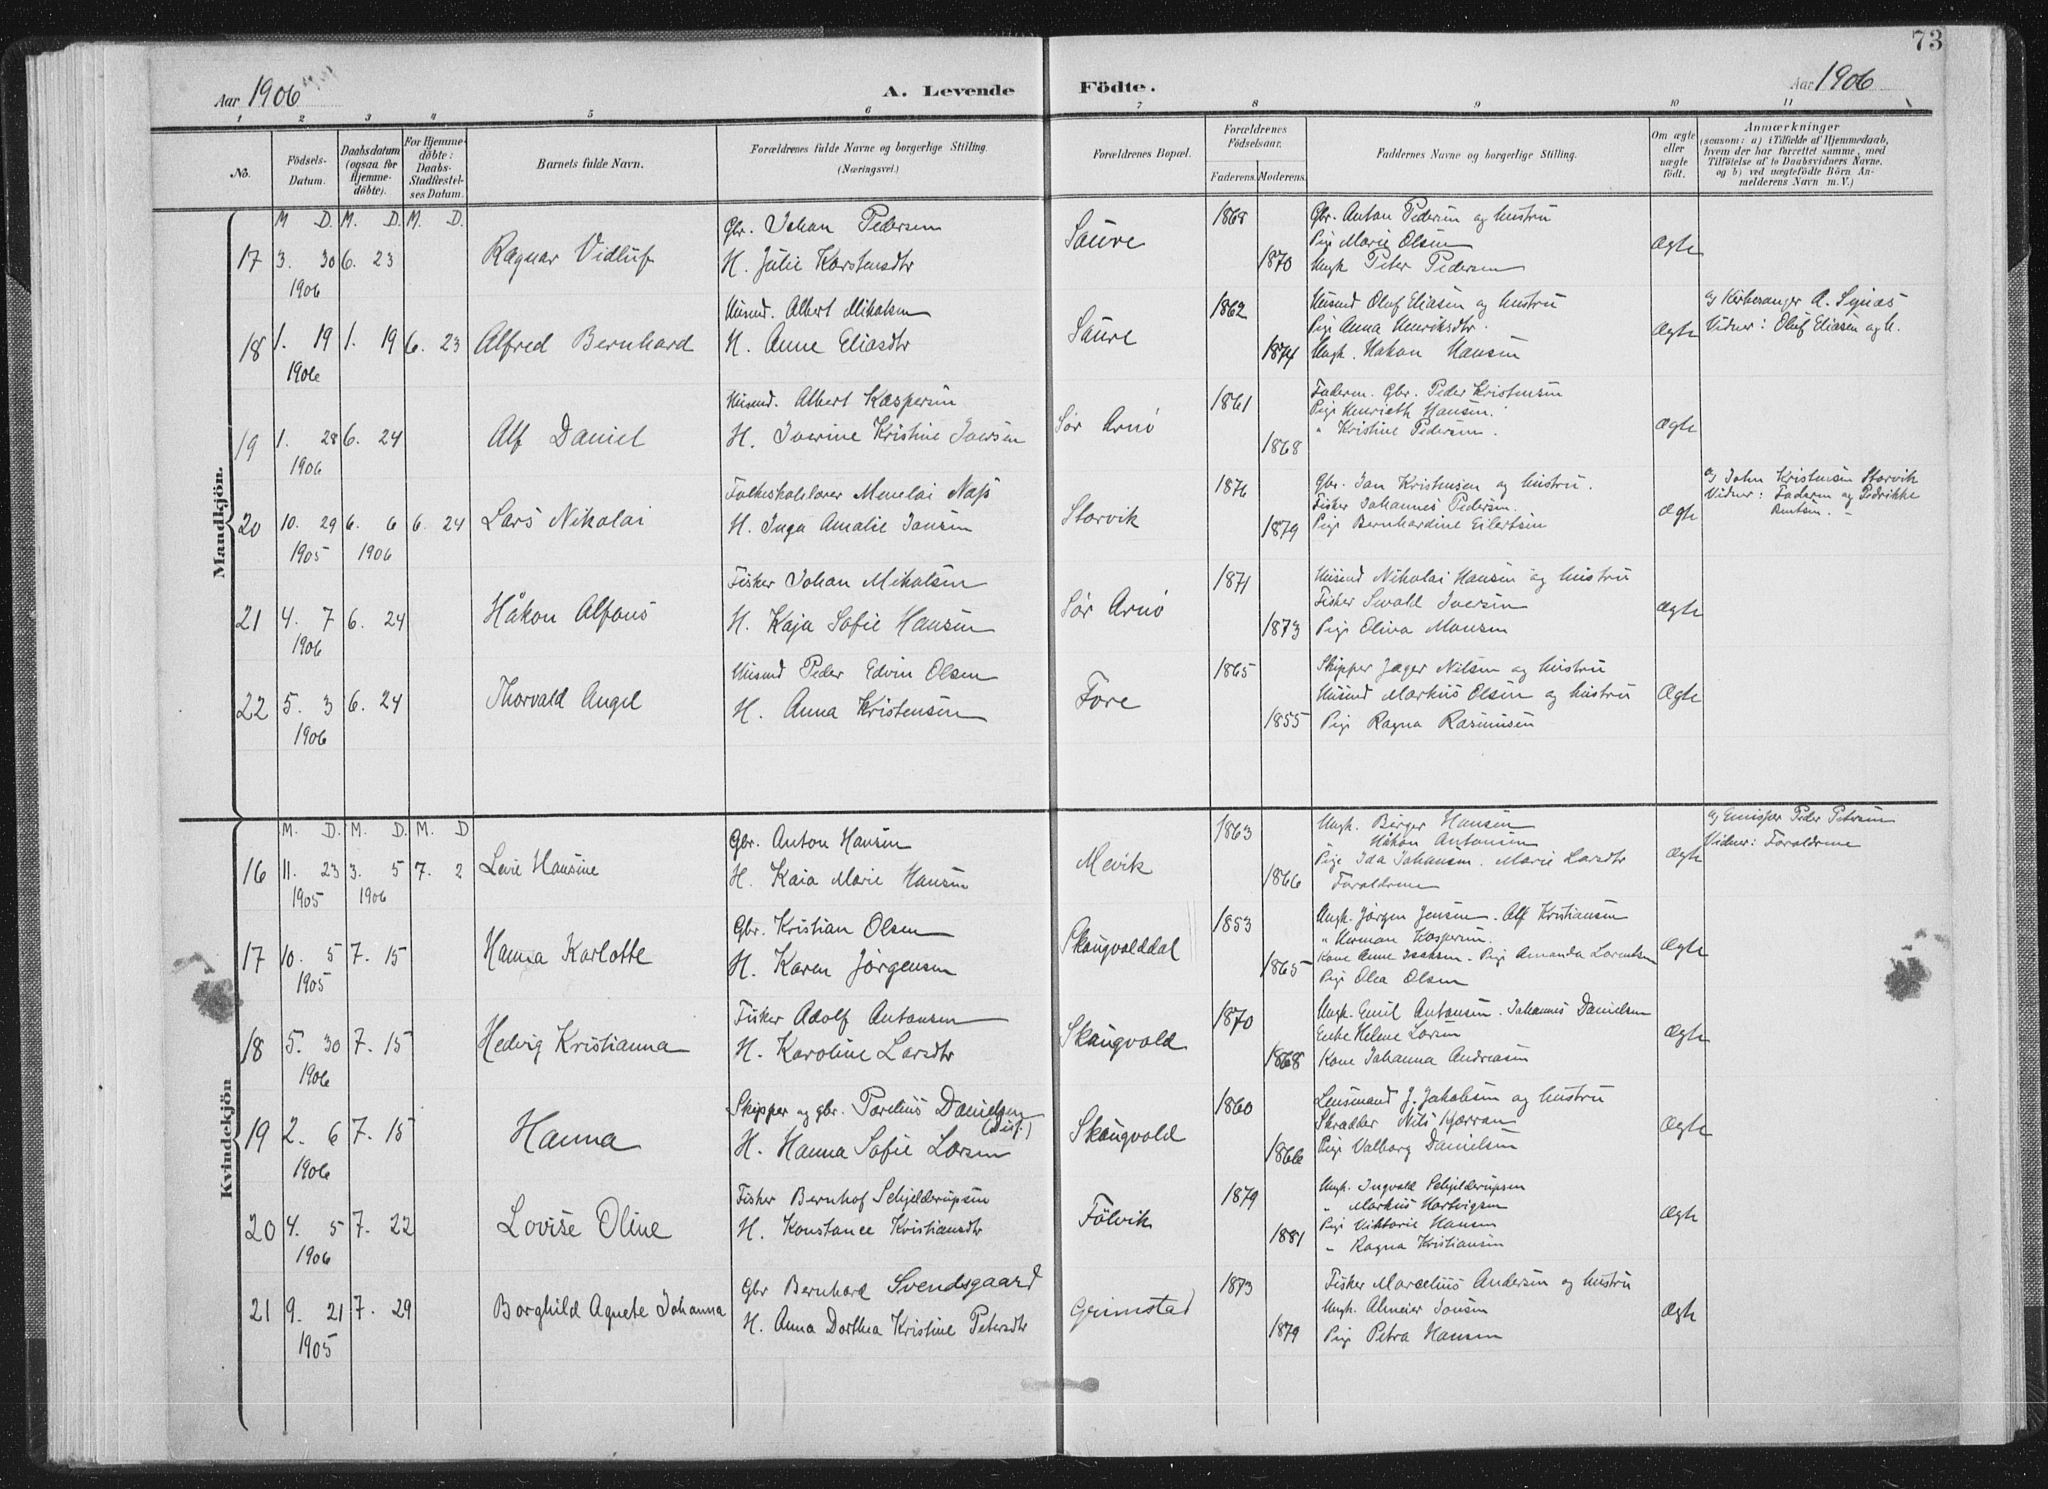 73
Aar 1906
A. Levende
Födte.
Aar 1906
1 2 3 4 5 6 7 8 9 10 11
No.
Födsels-Datum.
Daabsdatum (ogsaa for Hjemme-döbte).
For Hjemme-döbte: Daabs-Stadfæstel-ses Datum.
Barnets fulde Navn.
Forældrenes fulde Navne og borgerlige Stilling.
(Næringsvei.)
Forældrenes Bopæl.
Forældrenes Födselsaar.
Faderens. Moderens.
Faddernes Navne og borgerlige Stilling.
Om ægte eller uægte födt.
Anmærkninger
(saasom: a) i Tilfælde af Hjemmedaab,
hvem der har forrettet samme, med
Tilföielse af to Daabsvidners Navne,
og b) ved uægtefödte Börn An-
melderens Navn m. V.)
Mandkjön.
M. D. M. D. M. D.
Gbr. Johan Pedersen
1868
Gbr. Anton Pedersen og hustru
17 3. 30 6. 23
Ragnar Vidluf
H. Julie Karstensdtr
Saure
1870
Pige Marie Olsen
Ungk. Peter Pedersen
Ægte
1906
Husmd. Albert Mikalsen
1862
Husmd Oluf Eliasen og hustru
a) Kirkesanger A. Synæs
Pige Anna Henriksdtr.
Vidner: Oluf Eliasen og h.
18 1. 19 1. 19 6. 23
Alfred Bernhard
H. Anne Eliasdtr
Saure
1874
Ungk. Hakon Hansen
Ægte
1906
Husmd. Albert Kaspersen
1861
Faderen. Gbr. Peder Kristensen
Pige Henrieth Hansen.
19 1. 28 6. 24
Alf Daniel
H. Iverine Kristine Iversen
Sør Arnø
1868
" Kristine Pedersen.
Ægte
1906
Folkeskolelærer Menelai Næss
1876
Gbr. Jan Kristensen og hustru.
a) John Kristensen Storvik
Fisker Johannes Pedersen.
Vidner: Faderen og Fredrikke
Bentsen.
20 10. 29 6. 6 6. 24
Lars Nikolai
H. Inga Amalie Jansen
Storvik
1879
Pige Bernhardine Eilertsen
Ægte
1905 1906
Fisker Johan Mikalsen
1871
Husmd Nikolai Hansen og hustru
Fisker Sevald Iversen
21 4. 7 6. 24
Håkon Alfons
H. Kaja Sofie Hansen
Sør Arnø
1873
Pige Oliva Monsen
Ægte
1906
Husmd Peder Edvin Olsen
1865
Skipper Jæger Nilsen og hustru
Husmd Markus Olsen og hustru
22 5. 3 6. 24
Thorvald Angel
H. Anna Kristensen
Fore
1855
Pige Ragna Rasmussen
Ægte
1906
Kvindekjön
M. D. M. D. M. D
Gbr. Anton Hansen
1863
Ungk. Birger Hansen
" Håkon Antonsen
a) Emissær Peder Petersen
Vidner: Forældrene
16 11. 23 3. 5 7. 2
Levie Hansine
H. Kaia Marie Hansen
Mevik
1866
Pige Ida Johansen. Marie Larsdtr
Forældrene
Ægte
1905 1906
Gbr. Kristian Olsen
1853
Ungk. Jørgen Jensen. Alf Kristiansen
" Herman Kaspersen.
17 10. 5 7. 15
Hanna Karlotte
H. Karen Jørgensen
Skaugvolddal
1865
Kone Anne Isaksen. Pige Amanda Lorentsen
Pige Olea Olsen
Ægte
1905
Fisker Adolf Antonsen
1870
Ungk. Emil Antonsen. Johannes Danielsen
Enke Helene Larsen
18 5. 30 7. 15
Hedvig Kristianna
H. Karoline Larsdtr
Skaugvold
1868
Kone Johanna Andreasen
Ægte
1906
Skipper og gbr. Parelius Danielsen
1860
Lensmand J. Jakobsen og hustru
Skrædder Nils Kjærran
19 2. 6 7. 15
Hanna
H. Hanna Sofie Larsen
Skaugvold
1866
Pige Valborg Danielsen
Ægte
1906
Fisker Bernhof Schjelderupsen
1879
Ungk. Ingvald Schjelderupsen
" Markus Hartvigsen
20 4. 5 7. 22
Lovise Oline
H. Konstance Kristiansdtr
Fölvik
1881
Pige Viktorie Hansen
" Ragna Kristiansen
Ægte
1906
Gbr Bernhard Svendsgaard
1873
Fisker Marcelius Andersen og hustru
Ungk. Almeier Jonsen
21 9. 21 7. 29
Borghild Agnete Johanna
H. Anna Dorthea Kristine Petersdtr
Grimstad
1879
Pige Petra Hansen
Ægte
1905